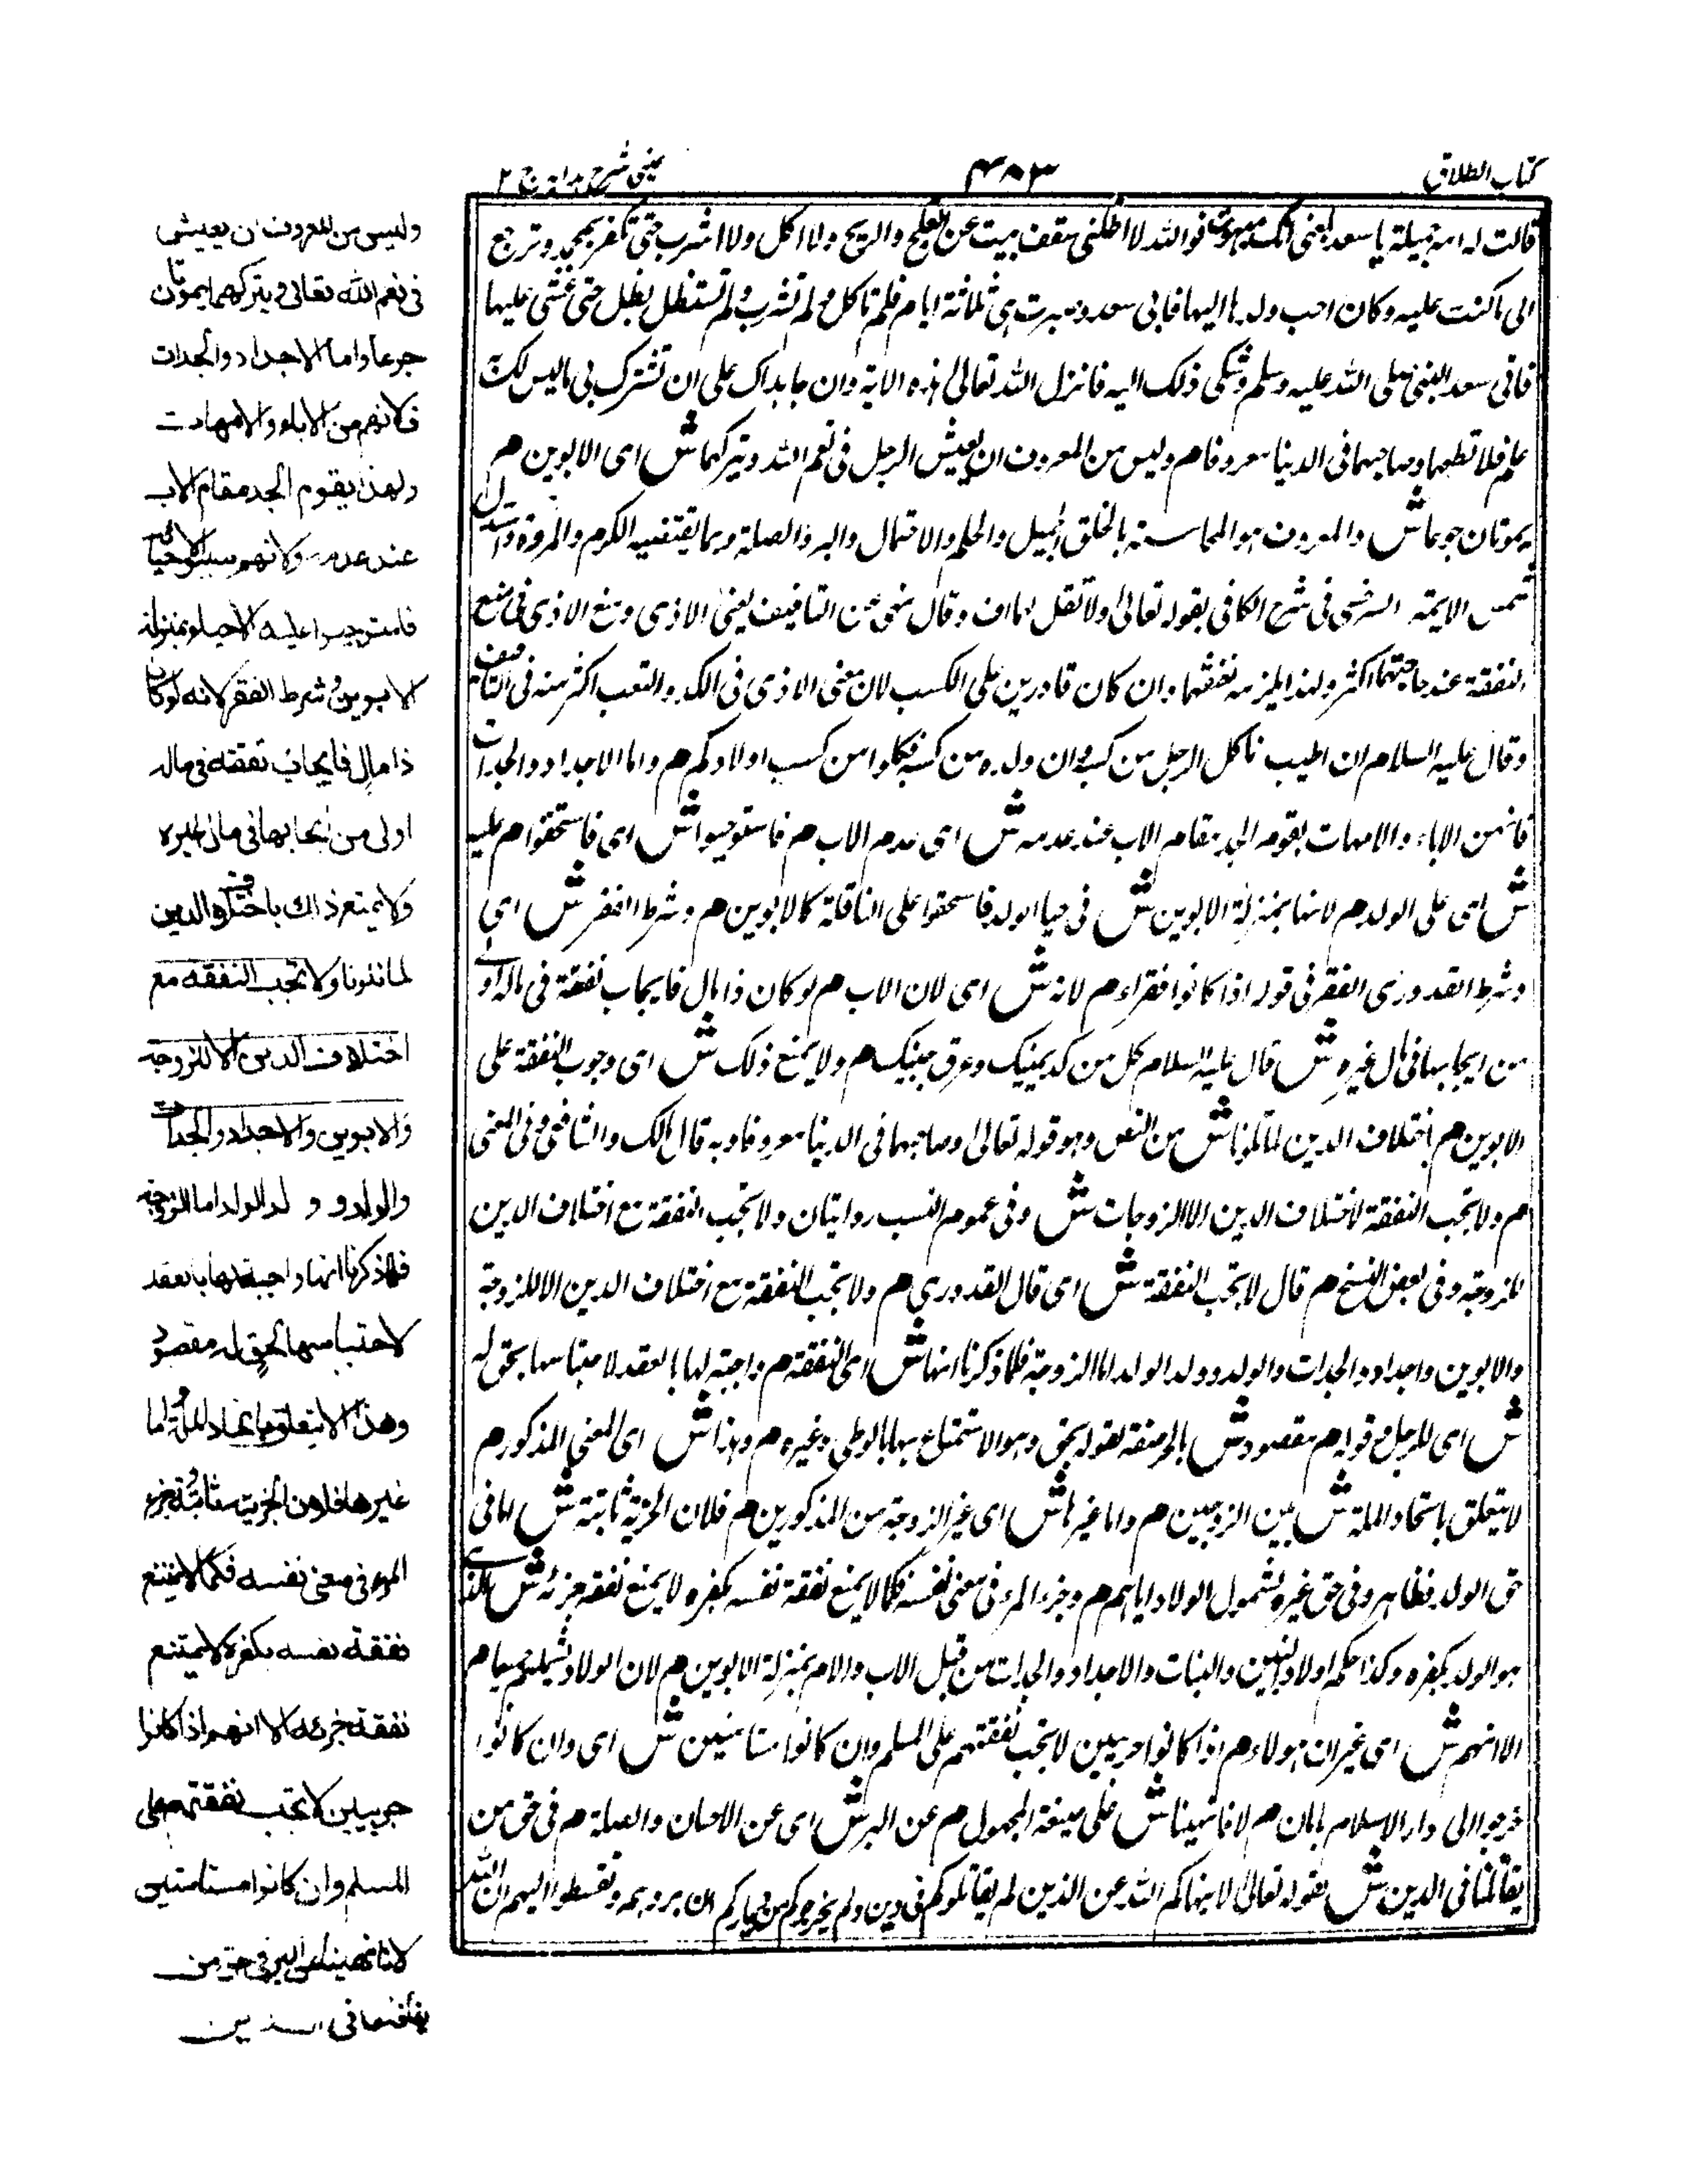 كتاب الطلاق
٤٨٣
عينى شرح هداية ج ٢
قالت له امه جميلة يا سعد بلغنى انك صبوت فوالله لا اظلنى سقف بيت عن الضح والريح ولا اكل ولا اشرب حتى تكفر بمحمد وترجع
الى ما كنت عليه وكان احب ولدها اليها فابى سعد وصبرت هى ثلاثة ايام فلم تاكل ولم تشرب ولم تستظل بظل حتى غشى عليها
فاتى سعد النبى صلى الله عليه وسلم وشكى ذلك اليه فانزل الله تعالى هذه الاية وان جاهداك على ان تشرك بى ما ليس لك به
علم فلا تطعهما وصاحبهما فى الدنيا معروفا م وليس من المعروف ان يعيش الرجل فى نعم الله ويتركهما ش اى الابوين م
يموتان جوعا ش والمعروف هو المحاسنة بالخلق الجميل والحلم والاحتمال والبر والصلة وبما يقتضيه الكرم والمروة واستدل
شمس الايمة السرخسى فى شرح الكافى بقوله تعالى ولا تقل لهما اف وقال نهى عن التافيف لمعنى الاذى ومنع الاذى فى منع
النفقة عند حاجتهما اكثر ولهذا يلزمه نفقتهما وان كان قادرين على الكسب لان معنى الاذى فى الكد والتعب اكثر منه فى التافيف
وقال عليه السلام ان اطيب ما اكل الرجل من كسبه وان ولده من كسبه فكلوا من كسب اولادكم م واما الاجداد والجدات
فانهم من الاباء والامهات يقوم الجد مقام الاب عند عدمه ش اى عدم الاب م فاستوجبوا ش اى فاستحقوا م عليه
ش اى على الولد م لانها بمنزلة الابوين ش فى حيا الولد فاستحقوا على الناقلة كالابوين م وشرط الفقر ش اى
وشرط القدورى الفقر فى قوله اذا كانوا فقراء م لانه ش اى لان الاب م لو كان ذا مال فايجاب نفقة فى ماله اولى
من ايجابها فى مال غيره ش قال عليه السلام كل من كد يمينك وعرق جبينك م ولا يمنع ذلك ش اى وجوب النفقة على
الابوين م باختلاف الدين لما تلونا ش من النص وهو قوله تعالى وصاحبهما فى الدنيا معروفا وبه قال مالك والشافعى وفى المغنى
م ولا تجب النفقة لاختلاف الدين الا للزوجات ش وفى عموم النسب روايتان ولا تجب النفقة مع اختلاف الدين
للزوجة وفى بعض النسخ م قال لا تجب النفقة ش اى قال القدورى م ولا تجب النفقة مع اختلاف الدين الا للزوجة
والابوين واجداد والجدات والولد وولد الولد اما الزوجة فلما ذكرنا انها ش اى النفقة م واجبة لها بالعقد لاحتباسها بحق له
ش اى للرجل وقوله م مقصود ش بالرصفة لقوله بحق وهو الاستمتاع بها بالوطى وغيره م وهذا ش اى المعنى المذكور م
لا يتعلق باتحاد الملة ش بين الزوجين م واما غيرها ش اى غير الزوجة من المذكورين م فلان الجزئية ثابتة ش اما فى
حق الولد فظاهر وفى حق غيره بشمول الولاد اياهم م وجزء المرء فى معنى نفسه فكما لا يمنع نفقة نفسه بكفره لا يمنع نفقة جزئه ش
هو الولد بكفره وكذا حكم اولاد البنين والبنات والاجداد والجدات من قبل الاب والام بمنزلة الابوين م لان الولاد يشملهم جميعا م
الا انهم ش اى غير ان هولاء م اذا كانوا حربيين لا تجب نفقتهم على المسلم وان كانوا مستامنين ش اى وان كانوا
خرجوا الى دار الاسلام بامان م لانا نهينا ش على صيغة المجهول م عن البر ش اى عن الاحسان والصلة م فى حق من
يقاتلنا فى الدين ش بقوله تعالى لا ينهاكم الله عن الذين لم يقاتلوكم فى دين ولم يخرجوكم من دياركم ان تبروهم وتقسطوا اليهم ان الله
وليس من المعروف ان يعيش
فى نعم الله تعالى ويتركهما يموتان
جوعا واما الاجداد والجدات
فلانهم من الاباء والامهات
ولهذا يقوم الجد مقام الاب
عند عدمه ولانهم سببوا لاحيائه
فاستوجبوا عليه الاحياء بمنزلة
الابوين وشرط الفقر لانه لو كان
ذا مال فايجاب نفقته فى ماله
اولى من ايجابها فى مال غيره
ولا يمتنع ذلك باختلاف الدين
لما تلونا ولا تجب النفقة مع
اختلاف الدين الا للزوجة
والابوين والاجداد والجدات
والولد و ولد الولد اما الزوجة
فلما ذكرنا انها واجبة لها بالعقد
لاحتباسها لحق له مقصود
وهذا لا يتعلق باتحاد الملة واما
غيرها فلان الجزئية ثابتة وجزء
المرء فى معنى نفسه فكما لا يمتنع
نفقة نفسه بكفره لا يمتنع
نفقة جزئه الا انهم اذا كانوا
حربيين لا تجب نفقتهم على
المسلم وان كانوا مستامنين
لانا نهينا عن البر فى حق من
يقاتلنا فى الدين